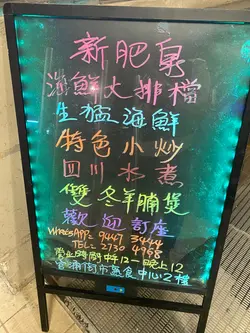 新肥泉
海鮮大排檔
生猛海鮮
特色小炒
四川水煮
雙冬羊腩煲
歡迎訂座
WHATSAPP: 9447 3444
TEL: 2730 4968
營业時間中午12一晚上12
官涌街市熟食中心2樓